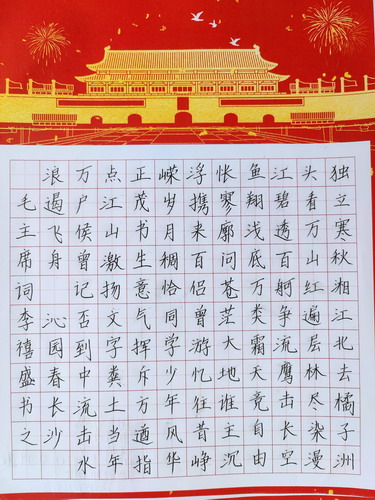 独立寒秋湘江北去橘子洲
头看万山红遍层林尽染漫
江碧透百舸争流鹰击长空
鱼翔浅底万类霜天竞自由
怅寥廓问苍茫大地谁主沉
浮携来百侣曾游忆往昔峥
嵘岁月稠恰同学少年风华
正茂书生意气挥斥方遒指
点江山激扬文字粪土当年
万户侯曾记否到中流击水
浪遏飞舟 沁园春长沙
毛主席词 李禧盛书之